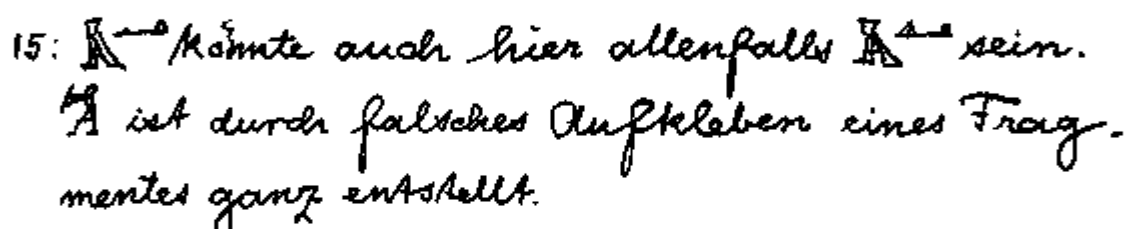 15: könnte auch hier allenfalls sein.
ist durch falsches Aufkleben eines Frag-
mentes ganz entstellt.